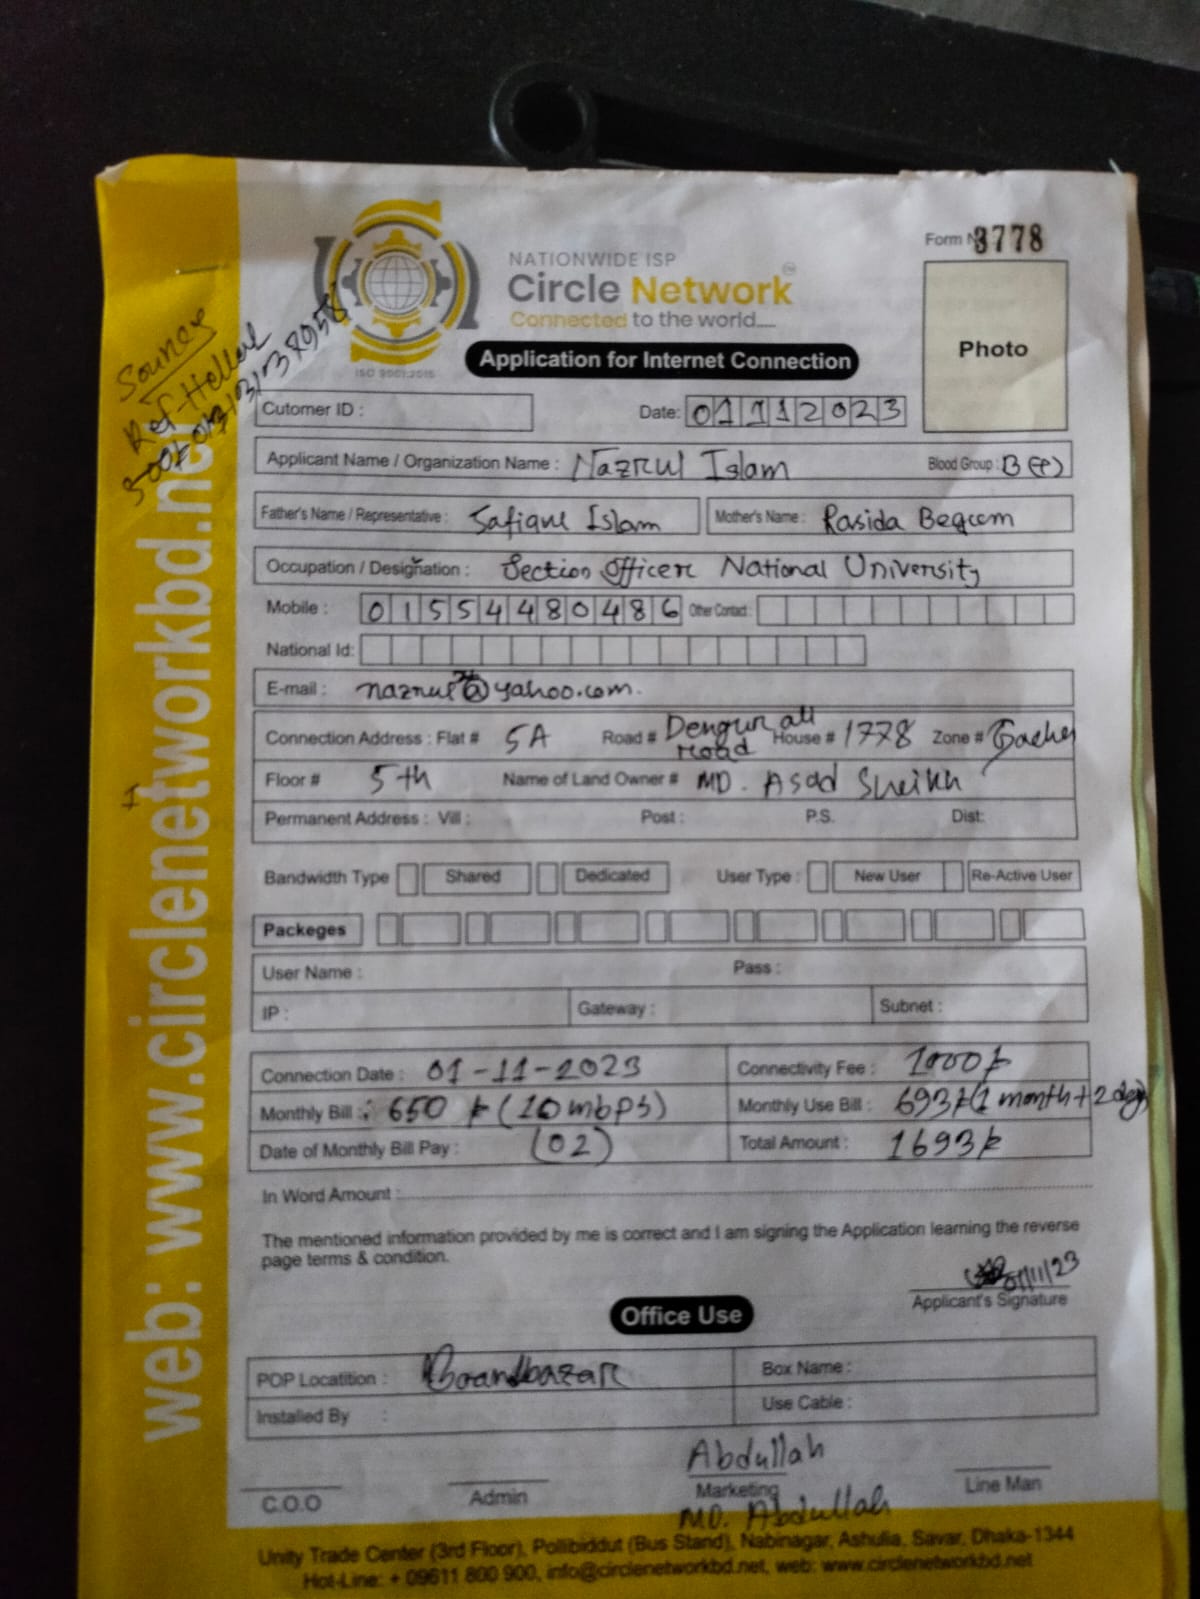 Form N 3778
NATIONWIDE ISP
Circle Network
Connected to the world....
ISO 9001:2015
Application for Internet Connection
Photo
Ref-Hellal
Cutomer ID :
Date: 01112023
Applicant Name / Organization Name : Nazrul Islam Blood Group : B (+)
Father's Name / Representative : Safique Islam Mother's Name : Rasida Begum
Occupation / Designation : Section Officer National University
Mobile : 01554480486 Other Contact :
National Id:
E-mail : @yahoo.com.
Connection Address : Flat # 5A Road # road House # 1778 Zone #
Floor # 5th Name of Land Owner # MD. Asad Sheikh
Permanent Address : Vill : Post : P.S. Dist:
Bandwidth Type Shared Dedicated User Type : New User Re-Active User
Packeges
User Name : Pass :
IP : Gateway : Subnet :
Connection Date : 01-11-2023 Connectivity Fee : 1000/-
Monthly Bill : 650 /- (10 mbps) Monthly Use Bill : 693/- (1 month + 2 day)
Date of Monthly Bill Pay : (02) Total Amount : 1693/-
In Word Amount :
The mentioned information provided by me is correct and I am signing the Application learning the reverse
page terms & condition.
01/11/23
Applicant's Signature
Office Use
POP Locatition : Boardbazar Box Name :
Installed By : Use Cable :
Abdullah
C.O.O Admin Marketing Line Man
MD. Abdullah
Unity Trade Center (3rd Floor), Pollibiddut (Bus Stand), Nabinagar, Ashulia, Savar, Dhaka-1344
Hot-Line: + 09611 800 900, info@circlenetworkbd.net, web: www.circlenetworkbd.net
web: www.circlenetworkbd.net